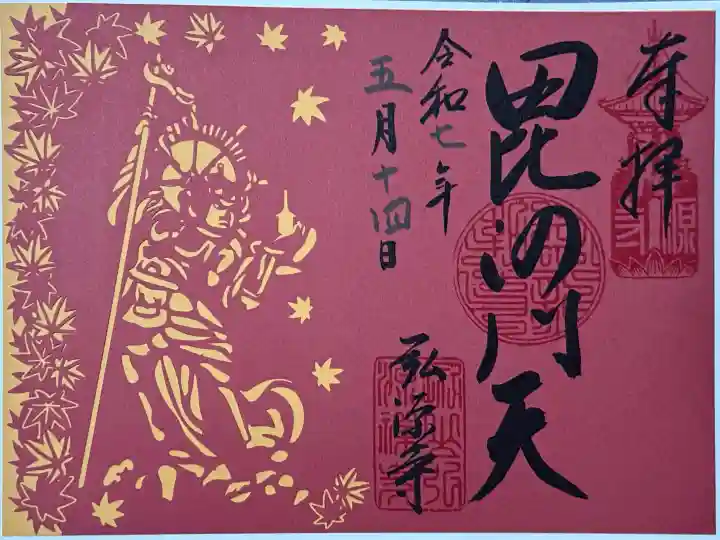 奉拝
毘沙門天
令和七年
五月十四日
弘源寺